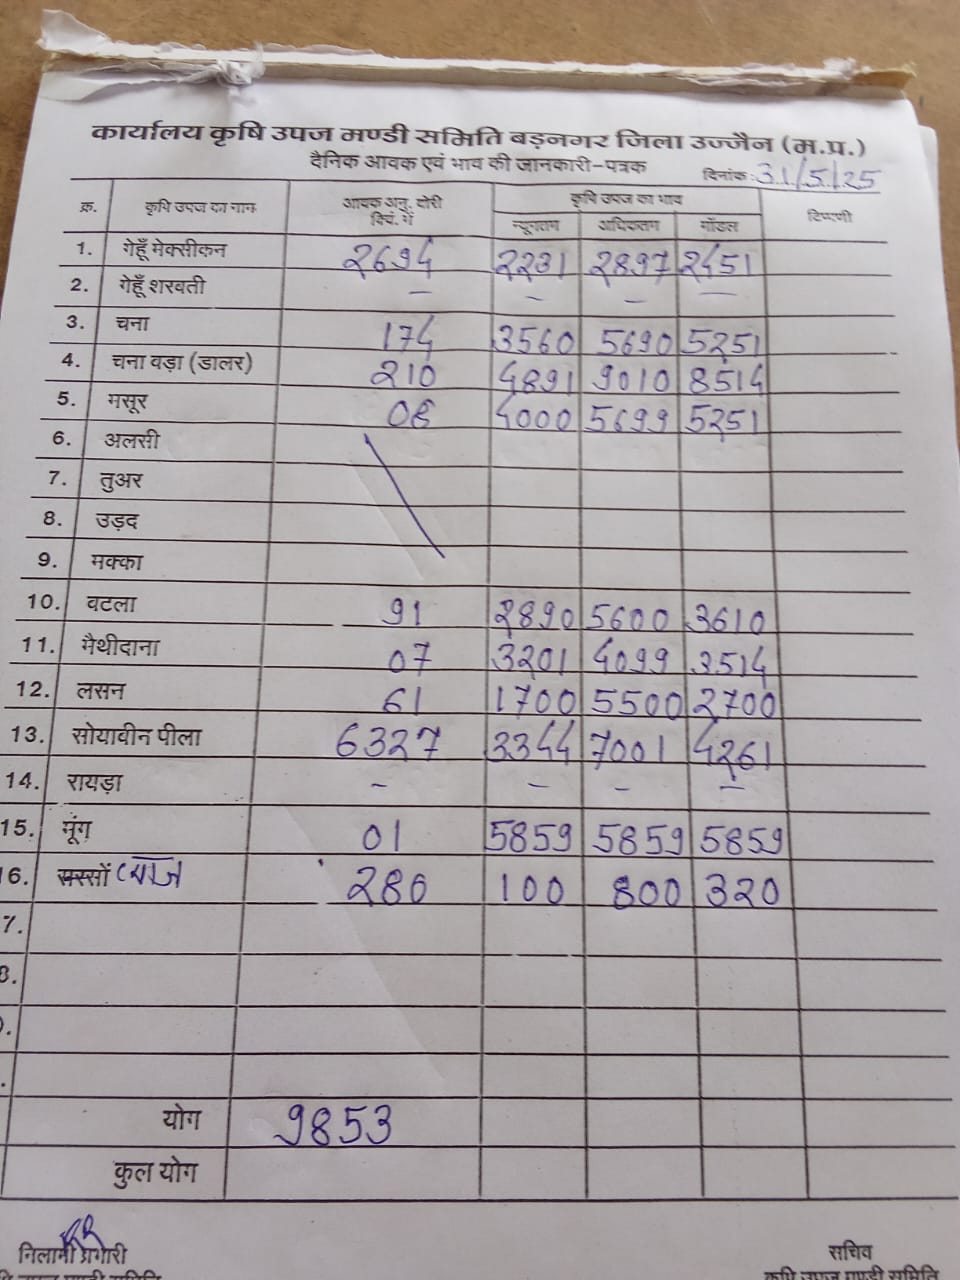 कार्यालय कृषि उपज मण्डी समिति बड़नगर जिला उज्जैन (म.प्र.)
दैनिक आवक एवं भाव की जानकारी-पत्रक
दिनांक : 31/5/25
क्र. कृषि उपज का नाम आवक अनु. बोरी क्विं. में कृषि उपज का भाव टिप्पणी
न्यूनतम अधिकतम मॉडल
1. गेहूँ मेक्सीकन 2694 2231 2897 2451
2. गेहूँ शरबती – – – –
3. चना 174 3560 5690 5251
4. चना बड़ा (डालर) 210 4891 9010 8514
5. मसूर 4000 5699 5251
6. अलसी
7. तुअर
8. उड़द
9. मक्का
10. बटला 91 2890 5600 3610
11. मैथीदाना 07 3201 4099 3514
12. लसन 61 1700 5500 2700
13. सोयाबीन पीला 6327 3344 7001 4261
14. रायड़ा – – – –
15. मूंग 01 5859 5859 5859
6. सरसों प्याज 280 100 800 320
7.
8.
योग 9853
कुल योग
निलामी प्रभारी सचिव
कृषि उपज मण्डी समिति